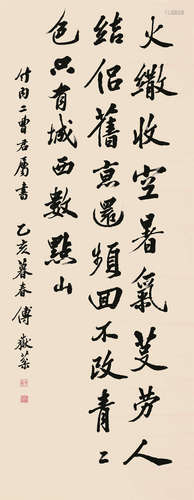 火繖收空暑氣芟勞人
結侶舊京還頻回不改青二
色只有城西數點山
付丙二曹君屬書 乙亥暮春 傅嶽棻